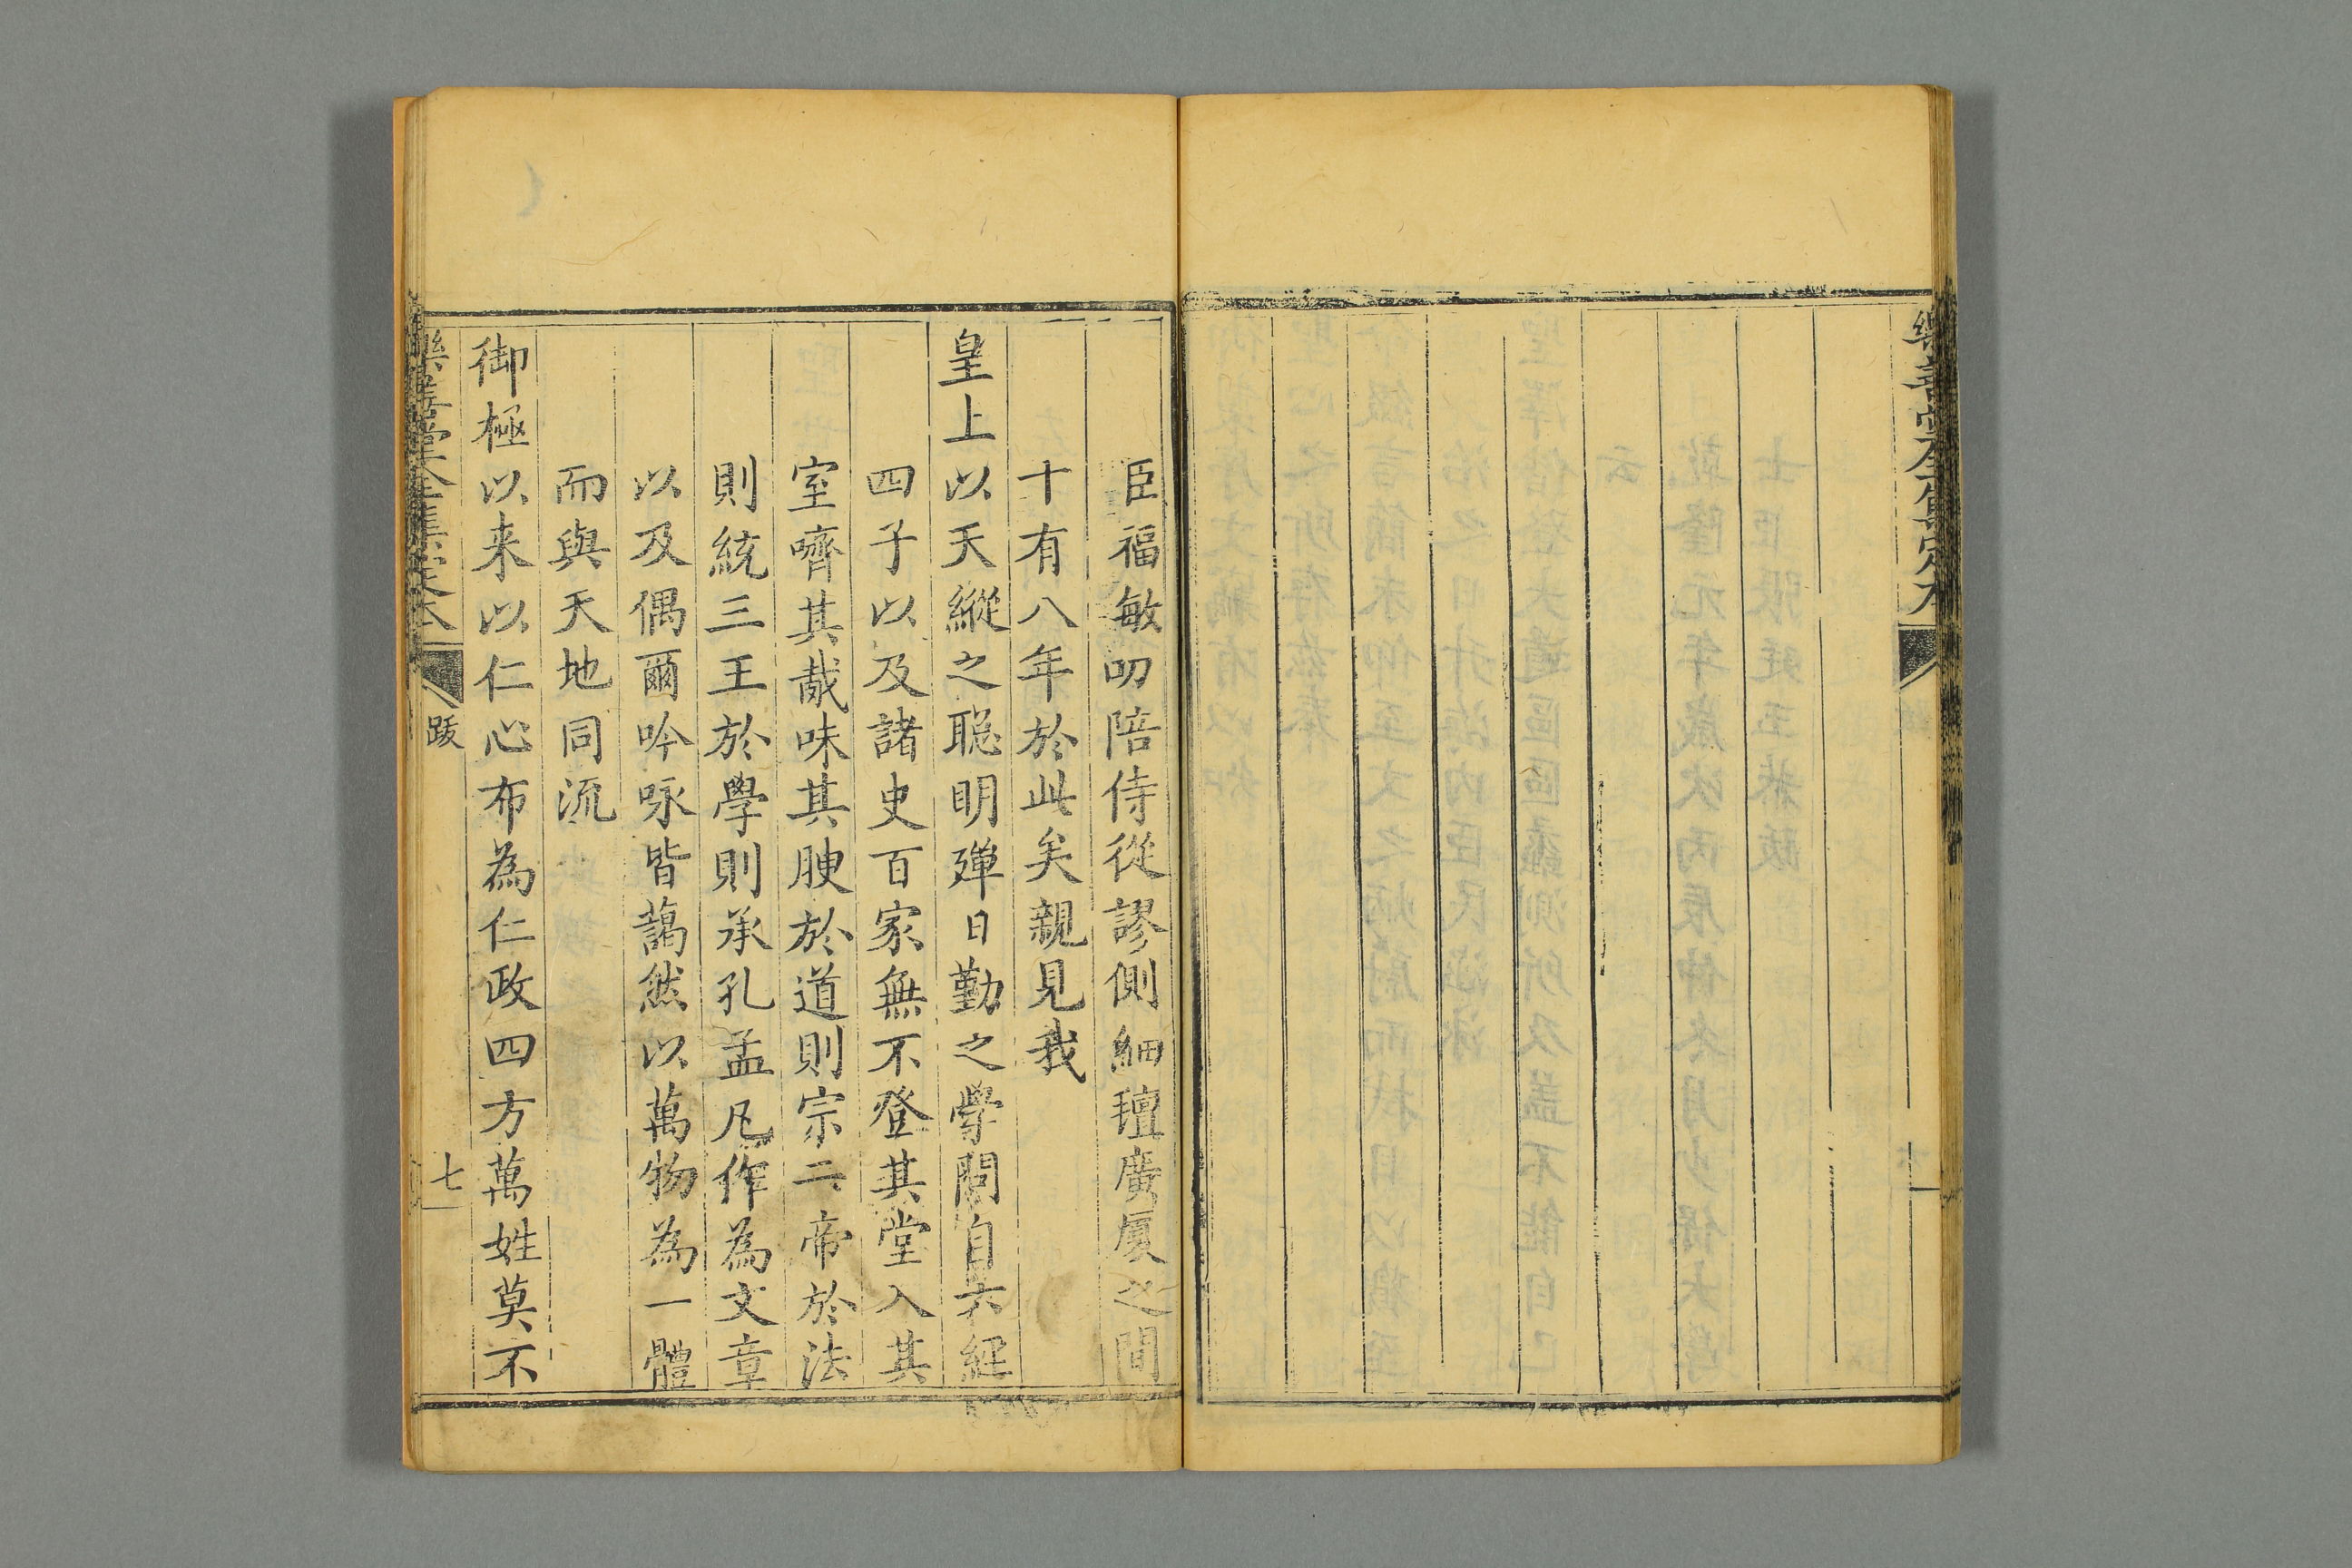 樂善堂全集定本
臣福敏叨陪侍從謬側細氊廣厦之間
十有八年於此矣親見我
皇上以天縱之聰明殫日勤之學問自六經
四子以及諸史百家無不登其堂入其
室嚌其胾味其腴於道則宗二帝於法
則統三王於學則承孔孟凡作為文章
以及偶爾吟咏皆藹然以萬物為一體
而與天地同流
御極以来以仁心布為仁政四方萬姓莫不
樂善堂全集定本
跋
七